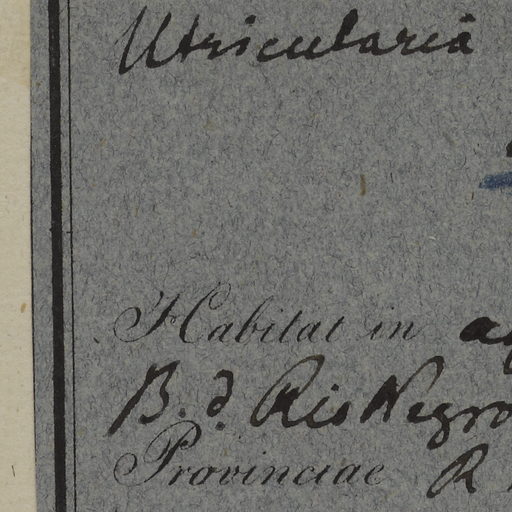 Utricularia
Habitat in
B. d. Rio Negro
Provinciae R